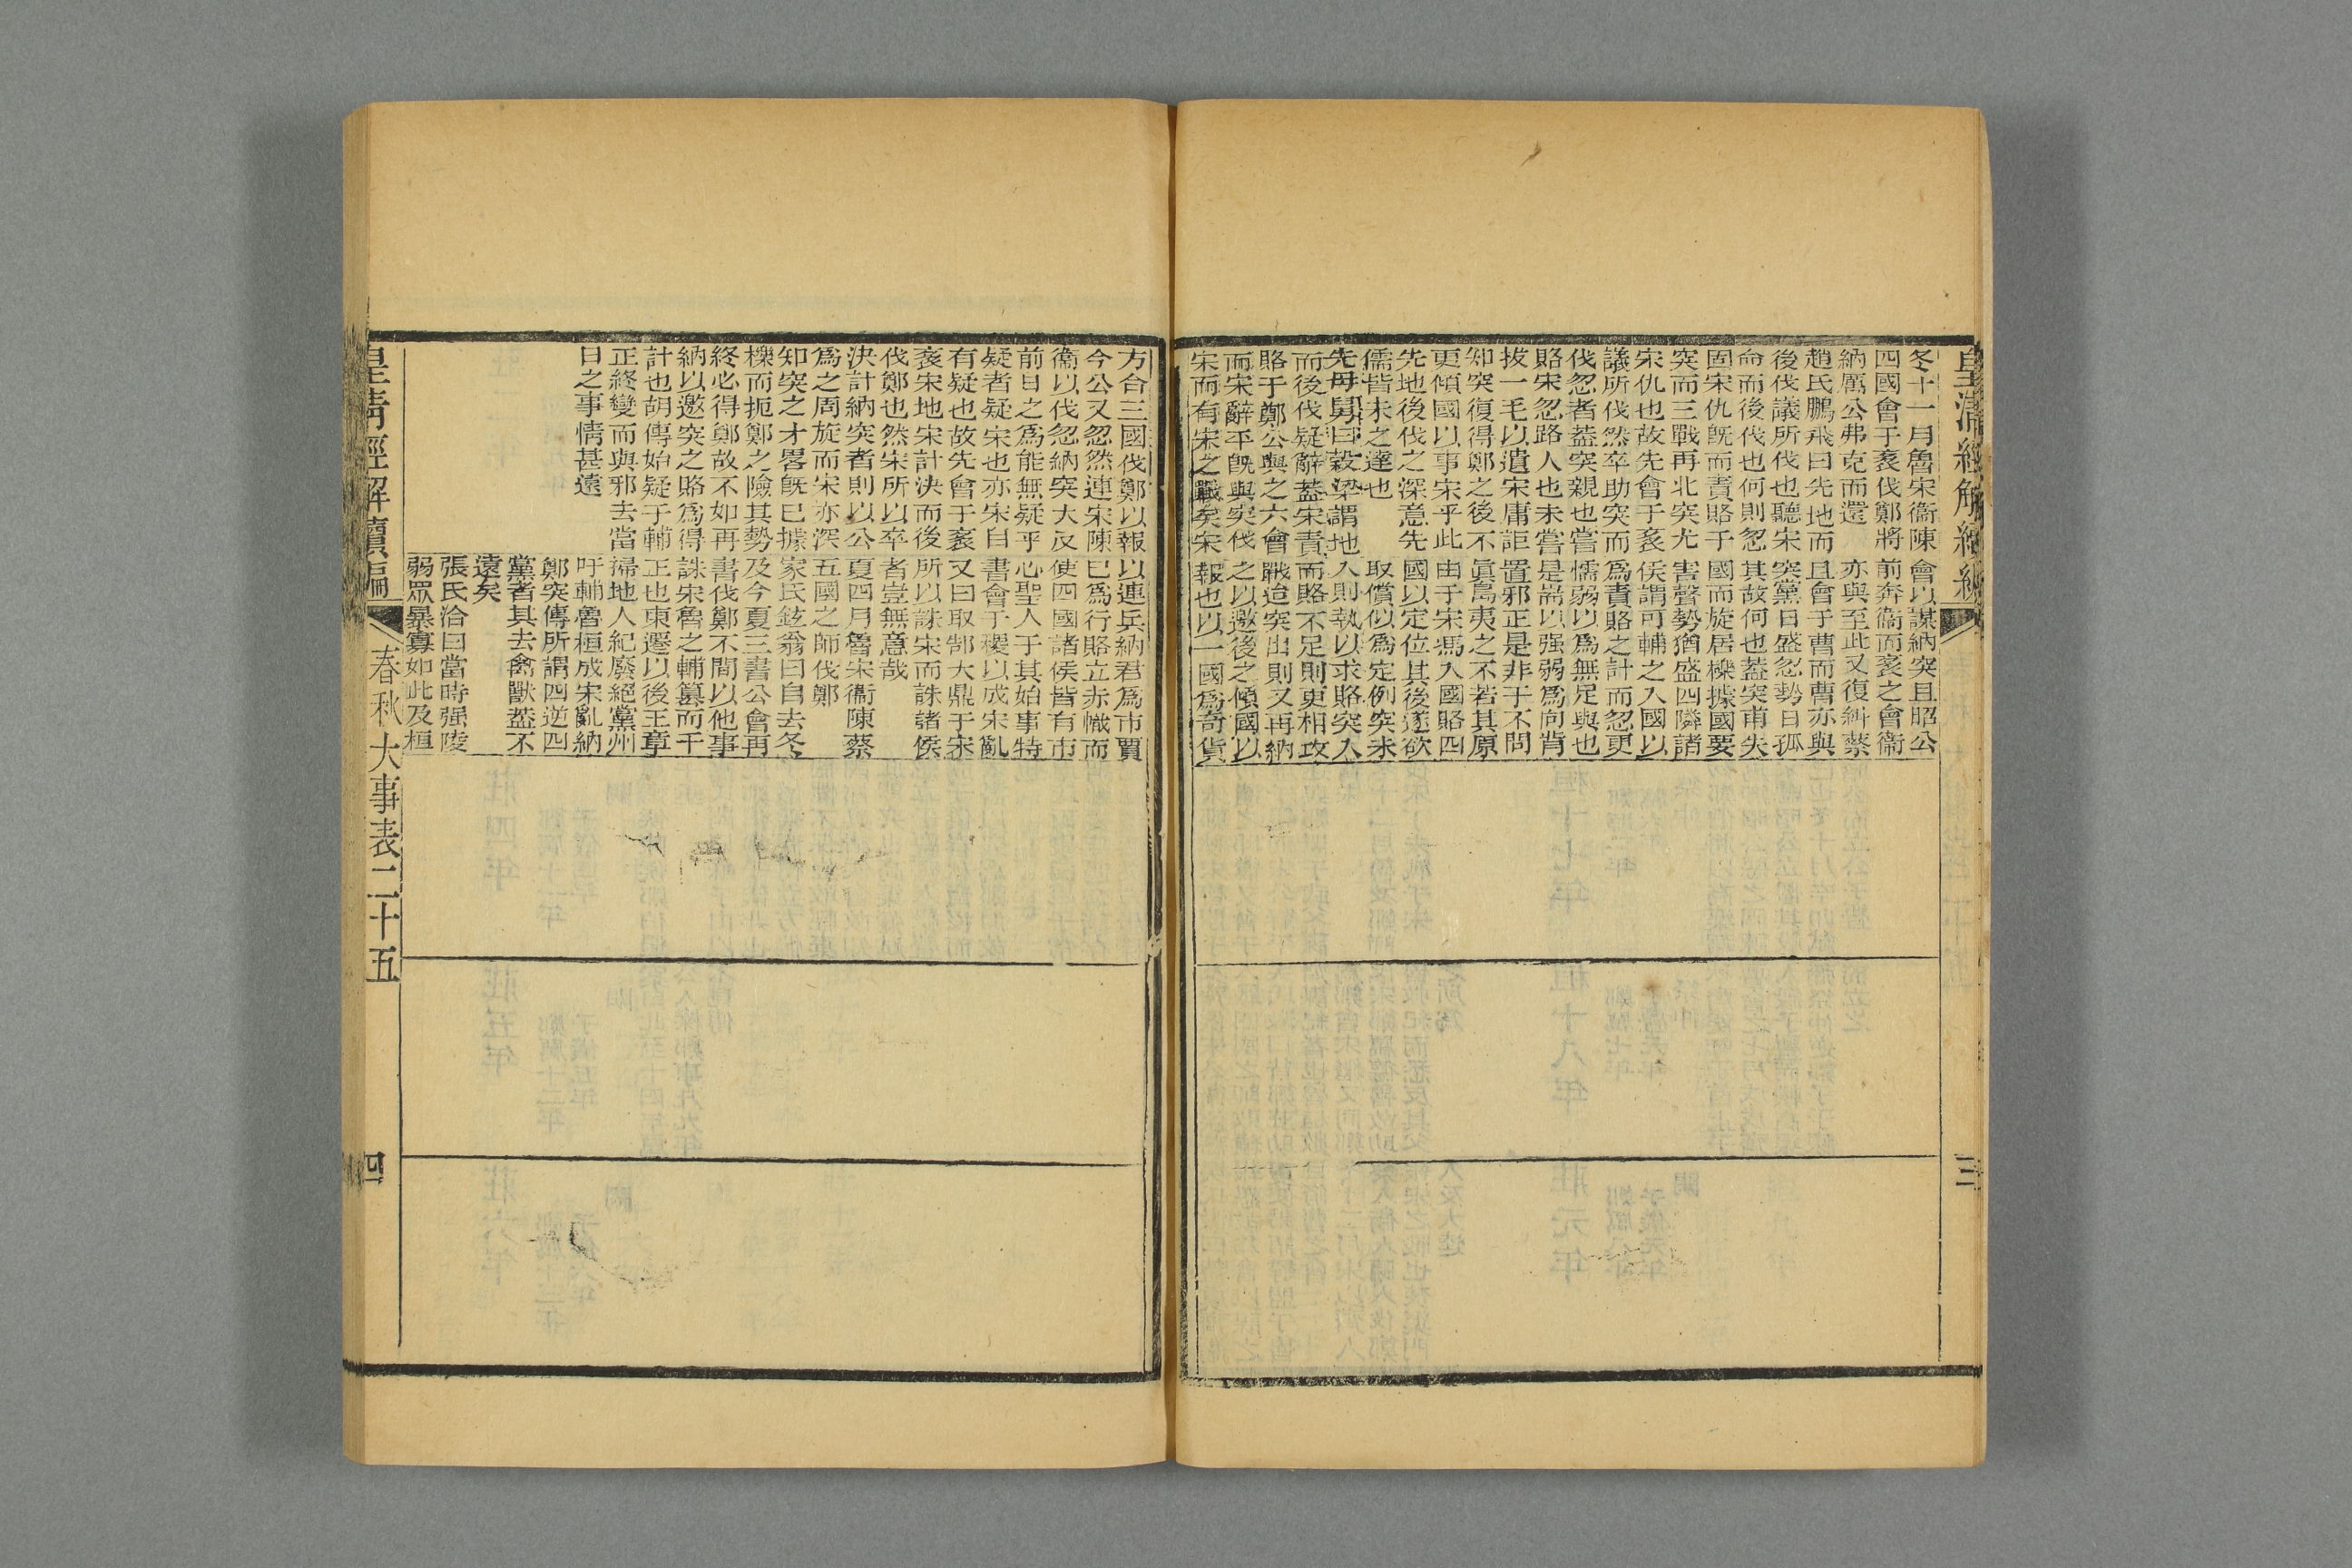 皇清經解續編
冬十一月魯宋衞陳
四國會于袲伐鄭將
納厲公弗克而還
趙氏鵬飛曰先地而
後伐議所伐也聽宋
命而後伐也何則忽
固宋仇既而責賂于
突而三戰再北突尤
宋仇也故先會于袲
議所伐然卒助突而
伐忽者蓋突親也嘗
賂宋忽路人也未嘗
拔一毛以遺宋庸詎
知突復得鄭之後不
更傾國以事宋乎此
先地後伐之深意先
儒皆未之達也
先母舅曰穀梁謂地
而後伐疑辭蓋宋責
賂于鄭公與之六會
而宋辭平既與突伐
宋而有宋之戰矣宋
會以謀納突且昭公
前奔衞而袲之會衞
亦與至此又復糾蔡
且會于曹而曹亦與
突黨日盛忽勢日孤
其故何也蓋突甫失
國而旋居櫟據國要
害聲勢猶盛四隣諸
侯謂可輔之入國以
爲責賂之計而忽更
懦弱以爲無足與也
是耑以强弱爲向背
置邪正是非于不問
眞島夷之不若其原
由于宋馮入國賂四
國以定位其後遂欲
取償似爲定例突未
入則執以求賂突入
而賂不足則更相攻
戰迨突出則又再納
之以邀後之傾國以
報也以一國爲奇貨
三
方合三國伐鄭以報
今公又忽然連宋陳
衞以伐忽納突大反
前日之爲能無疑乎
疑者疑宋也亦宋自
有疑也故先會于袲
袲宋地宋計決而後
伐鄭也然宋所以卒
決計納突者則以公
爲之周旋而宋亦深
知突之才畧既已據
櫟而扼鄭之險其勢
終必得鄭故不如再
納以邀突之賂爲得
計也胡傳始疑于輔
正終變而與邪去當
日之事情甚遠
以連兵納君爲市賈
已爲行賂立赤幟而
使四國諸侯皆有市
心聖人于其始事特
書會于稷以成宋亂
又曰取郜大鼎于宋
所以誅宋而誅諸侯
者豈無意哉
夏四月魯宋衞陳蔡
五國之師伐鄭
家氏鉉翁曰自去冬
及今夏三書公會再
書伐鄭不間以他事
誅宋魯之輔簒而干
正也東遷以後王章
掃地人紀廢絕黨州
吁輔魯桓成宋亂納
鄭突傳所謂四逆四
黨者其去禽獸蓋不
遠矣
張氏洽曰當時强陵
弱眾暴寡如此及桓
皇清經解續編
春秋大事表二十五
四